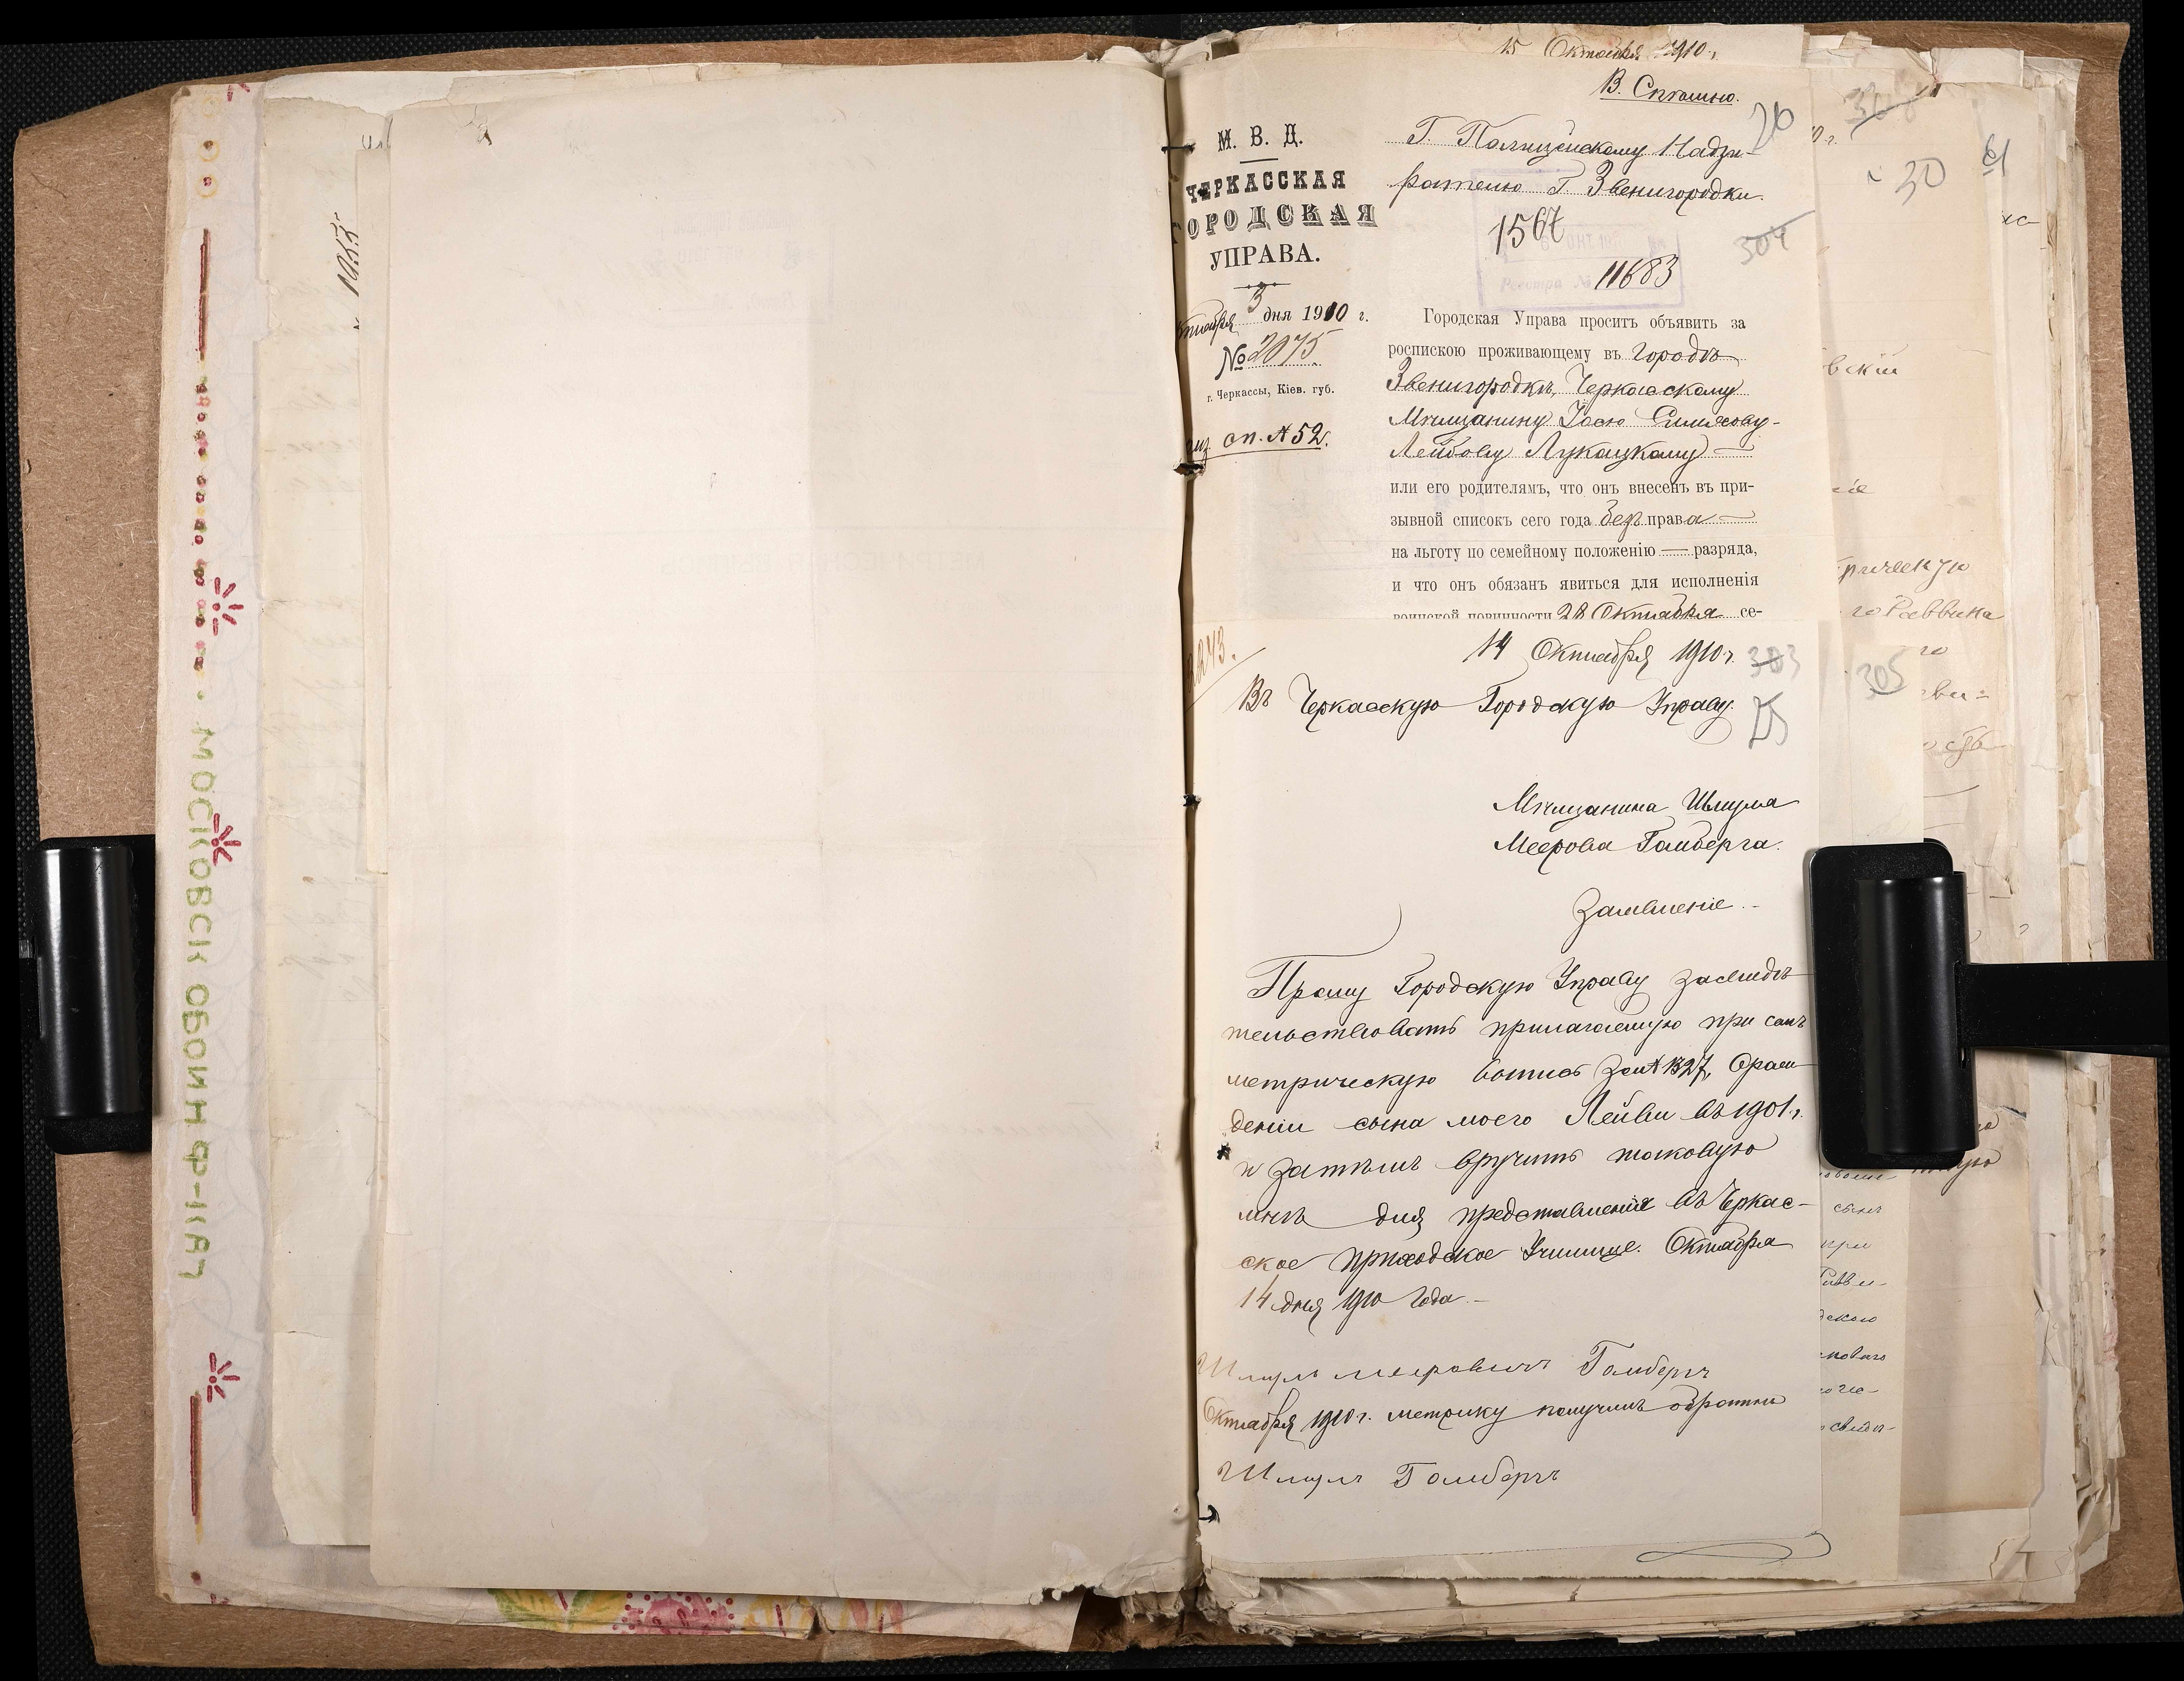 15 Октября 1910 г.
В. Спѣшно.
М. В. Д.
ЧЕРКАССКАЯ
ГОРОДСКАЯ
УПРАВА.
3 дня 1910 г.
№ 2075
г. Черкассы, Кіев. губ.
оп. № 52.
Г. Полицейскому Надзи-
рателю г. Звенигородки.
26
1567
304
Реестра № 11683
Городская Управа проситъ объявить за
роспискою проживающему въ городѣ
Звенигородкѣ, Черкасскому
Мѣщанину Іосю Симхову-
Лейбову Лукацкому
или его родителямъ, что онъ внесенъ въ при-
зывной списокъ сего года безъ права
на льготу по семейному положенію — разряда,
и что онъ обязанъ явиться для исполненія
воинской повинности 28 Октября се-
14 Октября 1910 г.
303
25
Въ Черкасскую Городскую Управу.
Мѣщанина Шмуля
Меерова Гамберга.
Заявленіе.
Прошу Городскую Управу засвидѣ
тельствовать прилагаемую при семъ
метрическую выпись за № 1327, о рож
деніи сына моего Лейви въ 1901 г.
и затѣмъ вручить таковую
мнѣ для представленія въ Черкас-
ское приходское Училище. Октября
14 дня 1910 года.
Шмуль Мееровичъ Гамбергъ
Октября 1910 г. метрику получилъ обратно
Шмуль Гамбергъ
30
61
305
вскій
рическую
го Раввина
сынъ
при
МОСКОВСК ОБОИН Ф-КА
1055